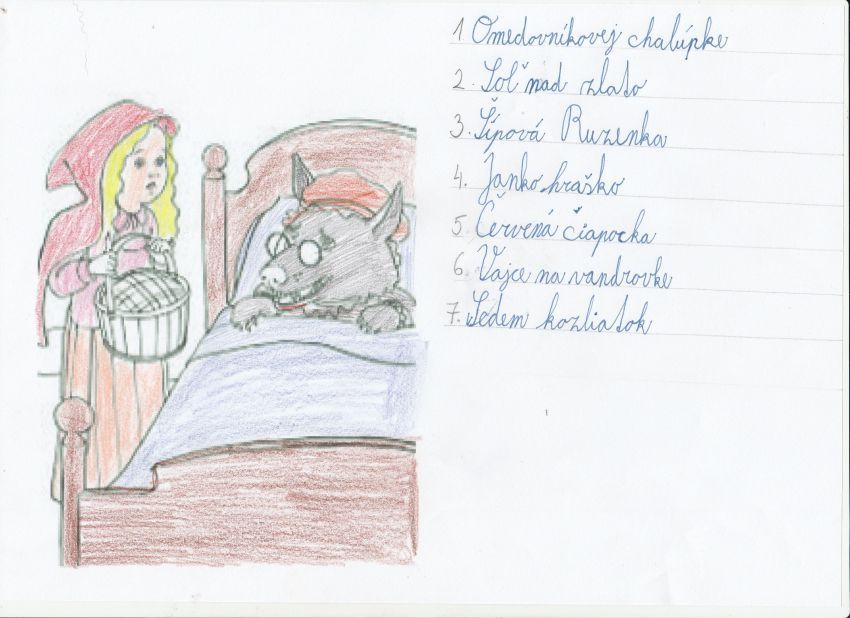 1 Omedovníkovej chalúpke
2. Soľ nad zlato
3. Šípová Ruzenka
4. Janko hraško
5. Červená Čiapocka
6. Vajce na vandrovke
7. Sedem kozliatok